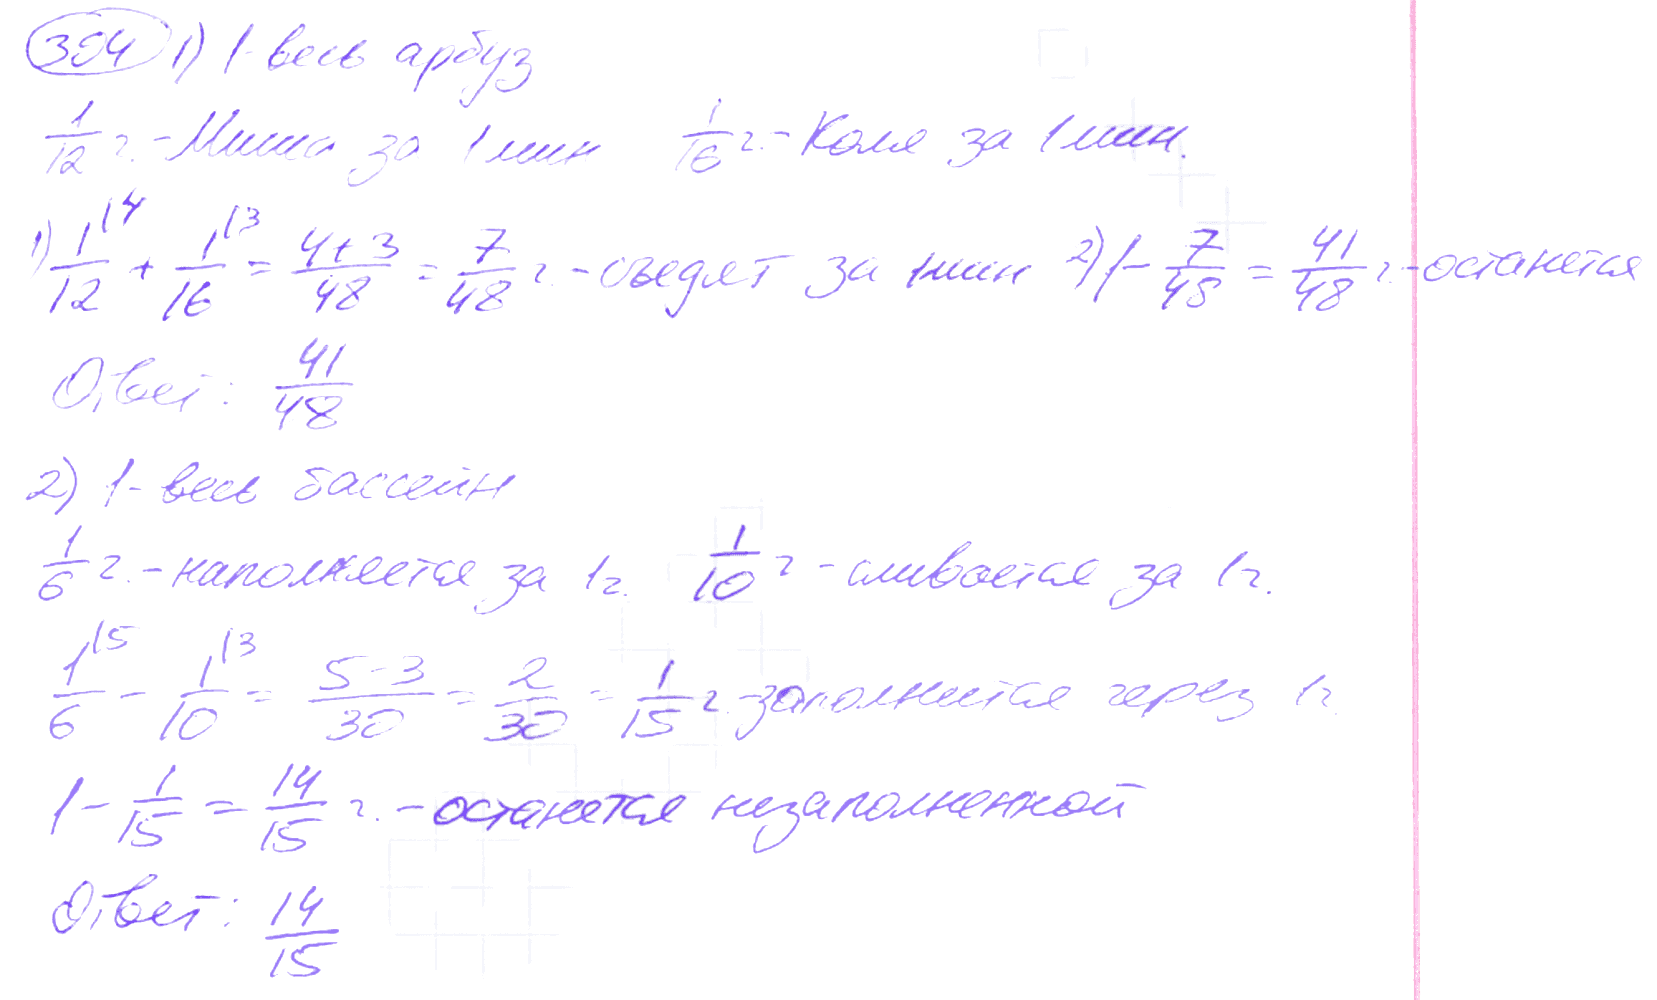 304 1) 1-весь арбуз
1/12 ч.-Миша за 1 мин 1/16 ч.-Коля за 1 мин.
1) 1/12 |4 + 1/16 |3 = 4+3/48 = 7/48 ч. - съедят за 1 мин 2) 1 - 7/48 = 41/48 ч. - останется
Ответ: 41/48
2) 1-весь бассейн
1/6 ч. - наполняется за 1 ч. 1/10 ч - сливается за 1 ч.
1/6 |5 - 1/10 |3 = 5-3/30 = 2/30 = 1/15 ч. - заполнится через 1 ч.
1 - 1/15 = 14/15 ч. - останется незаполненной
Ответ: 14/15